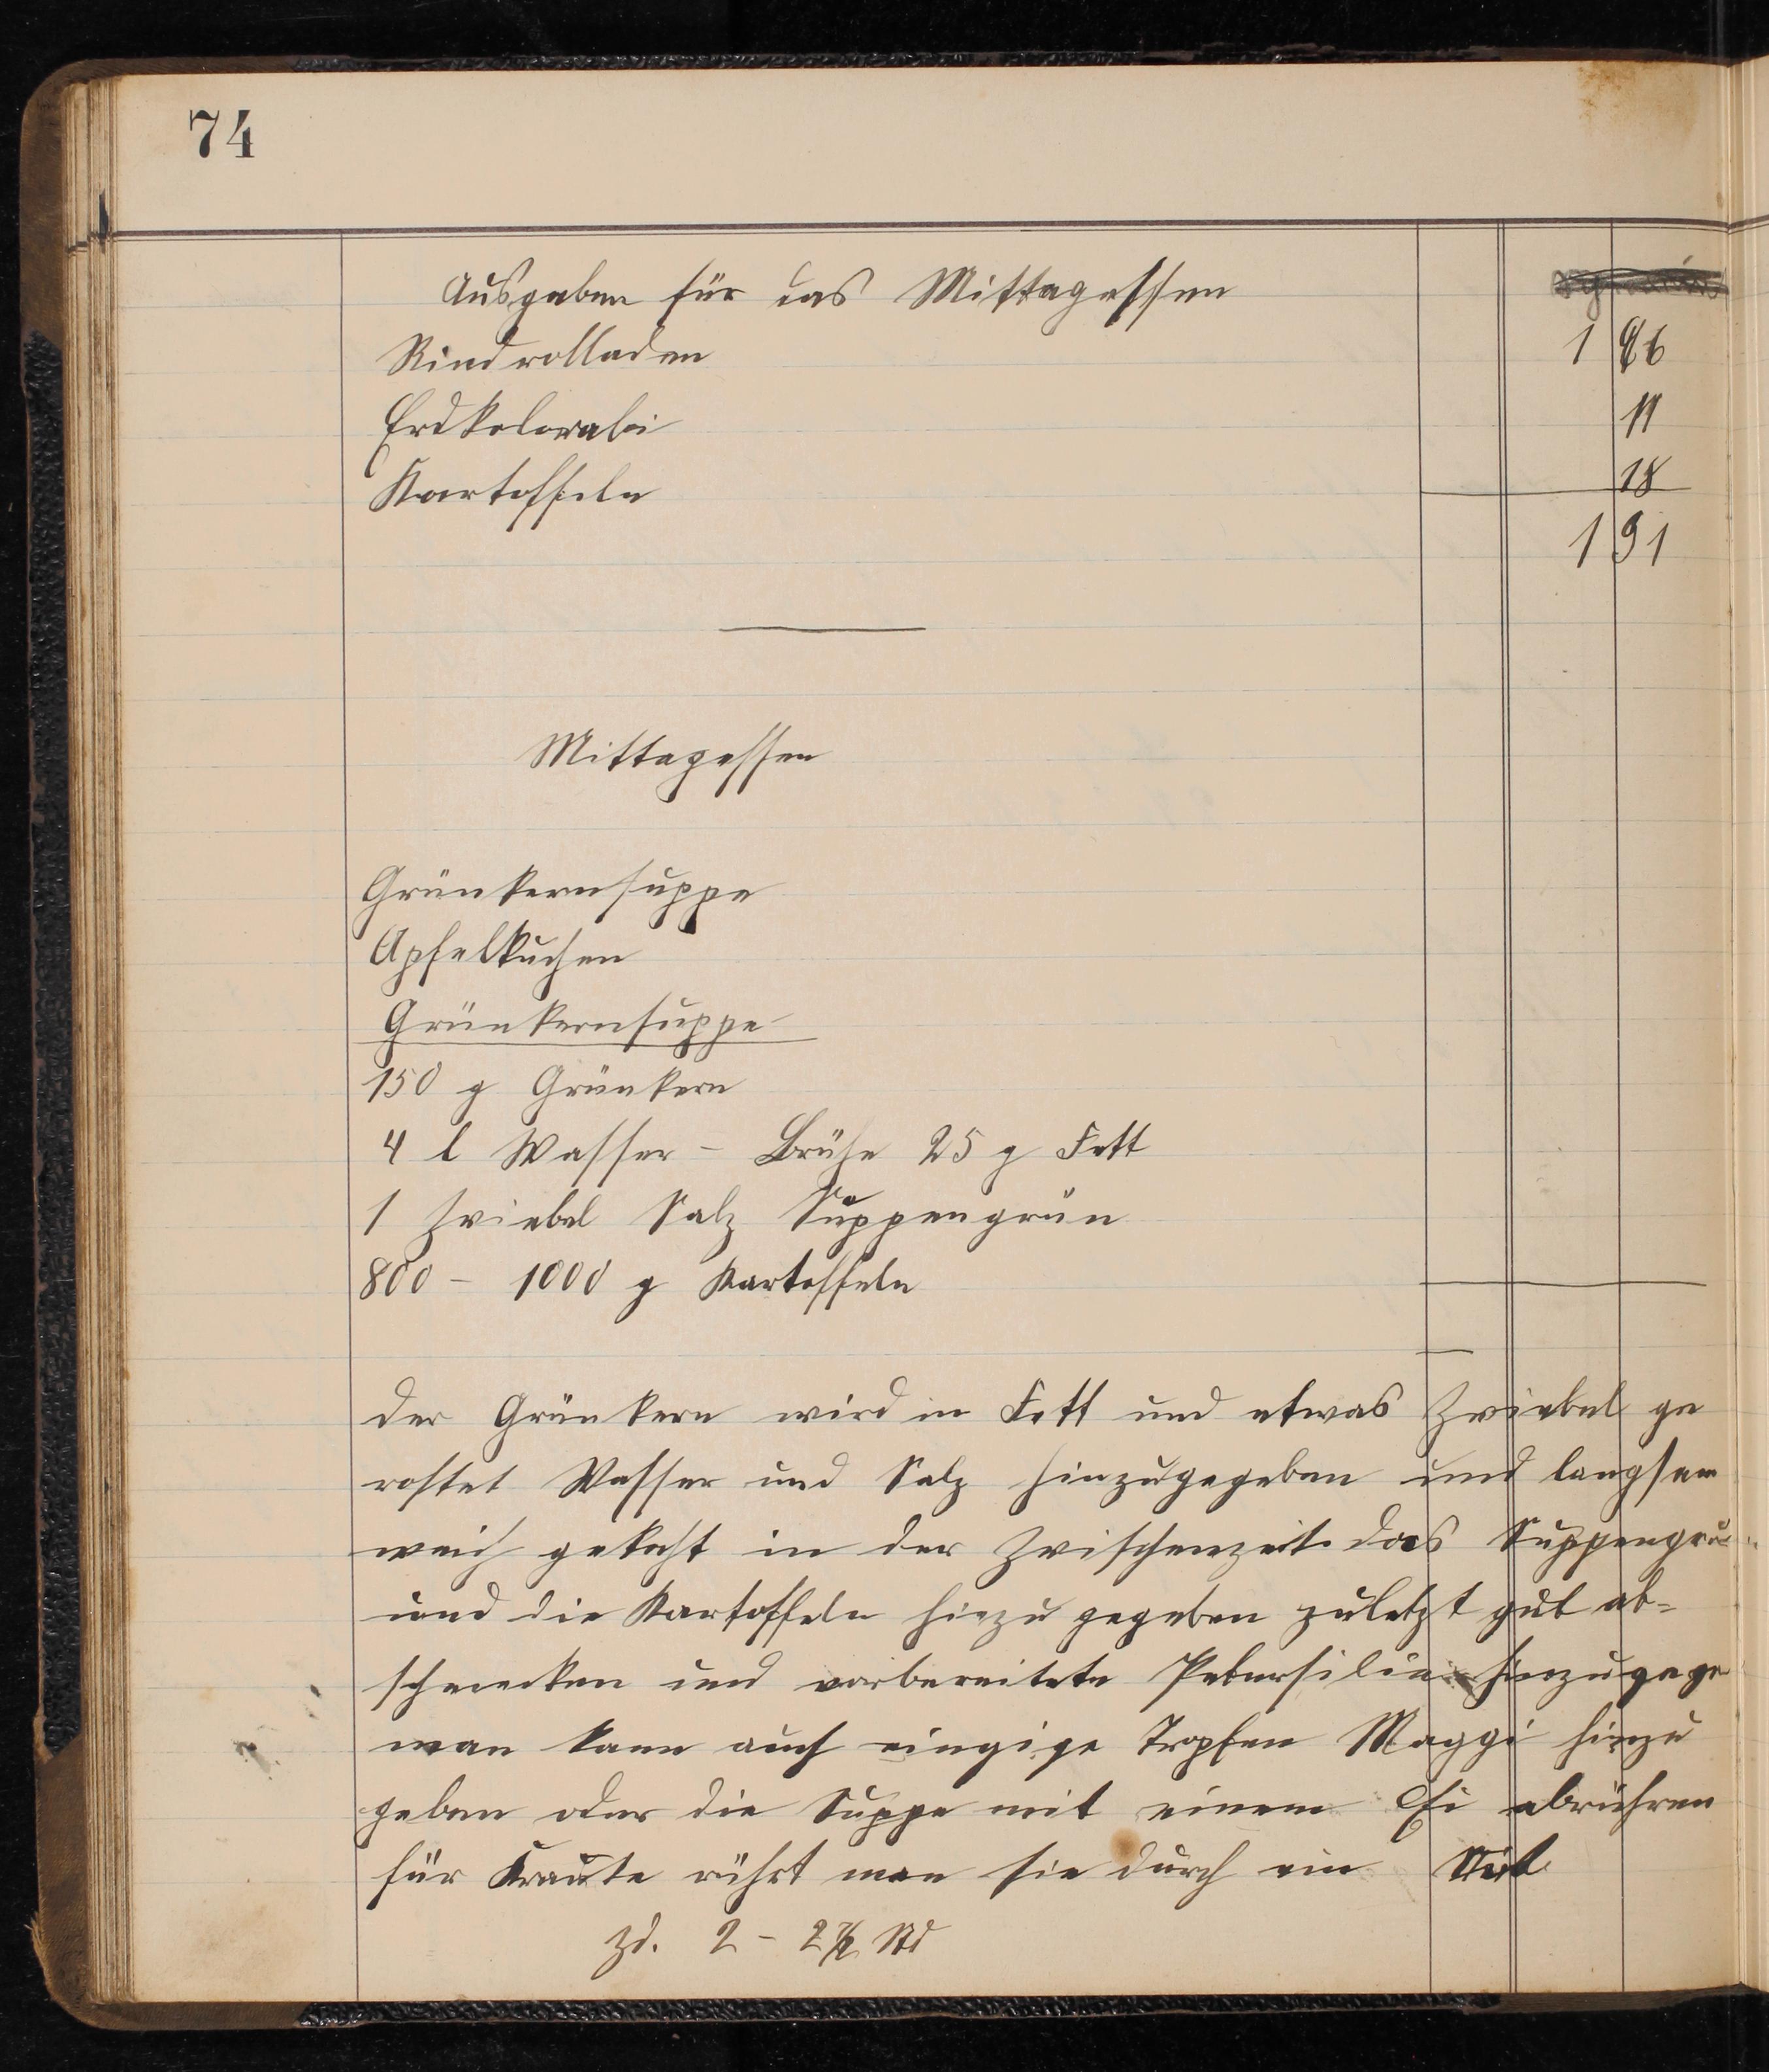 74
Ausgaben für das Mittagessen
Rindrolladen 1
Erdkolorabi 11
Kartoffeln 18
1 91
Mittagessen
Grünkernsuppe
Apfelkuchen
Grünkernsuppe
150 g Grünkern
4 l Wasser - Brühe 25 g Fett
1 Zwiebel Salz Suppengrün
800 - 1000 g Kartoffeln
der Grünkern wird in Fett und etwas Zwiebel ge
rostet Wasser und Salz hinzugegeben und langsam
weich gekocht in der Zwischenzeit das Suppengrün
und die Kartoffeln hinzu gegeben zuletzt gut ab=
schmecken und vorbereitete Petersilie hinzugege
man kann auch eingige Tropfen Maggi hinzu
geben oder die Suppe mit einem Ei abrühren
für Kranke rührt man sie durch ein
Zd. 2 - 2 1/2 Std